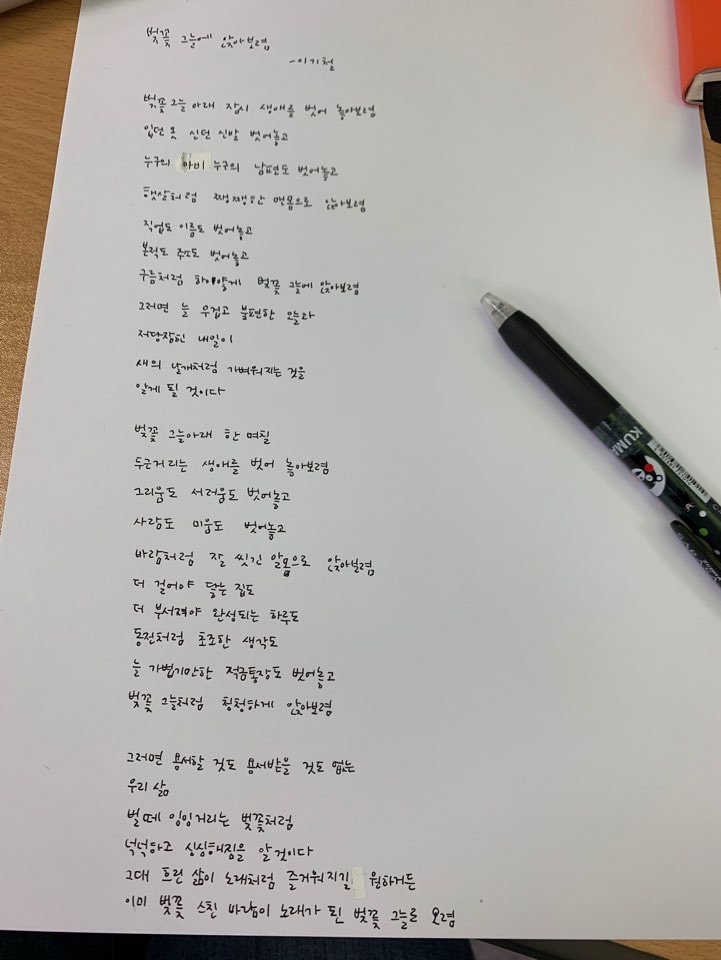 벚꽃 그늘에 앉아보렴
-이기철
벚꽃 그늘 아래 잠시 생애를 벗어 놓아보렴
입던 옷 신던 신발 벗어놓고
누구의 아비 누구의 남편도 벗어놓고
햇살처럼 쨍쨍한 맨몸으로 앉아보렴
직업도 이름도 벗어놓고
본적도 주소도 벗어놓고
구름처럼 하이얗게 벚꽃 그늘에 앉아보렴
그러면 늘 무겁고 불편한 오늘과
저당잡힌 내일이
새의 날개처럼 가벼워지는 것을
알게 될 것이다
벚꽃 그늘아래 한 며칠
두근거리는 생애를 벗어 놓아보렴
그리움도 서러움도 벗어놓고
사랑도 미움도 벗어놓고
바람처럼 잘 씻긴 알몸으로 앉아보렴
더 걸어야 닿는 집도
더 부서져야 완성되는 하루도
동전처럼 초조한 생각도
늘 가볍기만한 적금통장도 벗어놓고
벚꽃 그늘처럼 청정하게 앉아보렴
그러면 용서할 것도 용서받을 것도 없는
우리 삶
벌떼 잉잉거리는 벚꽃처럼
넉넉하고 싱싱해짐을 알 것이다
그대 흐린 삶이 노래처럼 즐거워지길 원하거든
이미 벚꽃 스친 바람이 노래가 된 벚꽃 그늘로 오렴
KUMA